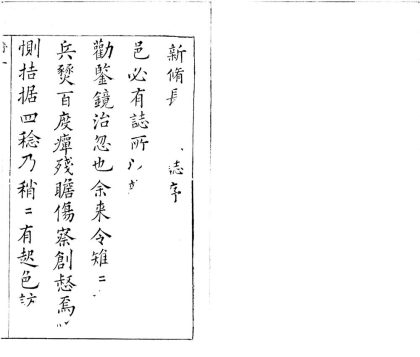 新脩長誌序
邑必有誌所
勸鑒鏡治忽也余来令雉〻
兵燹百度瘅残瞻傷察創惄焉
惻拮据四稔乃稍〻有起色訪